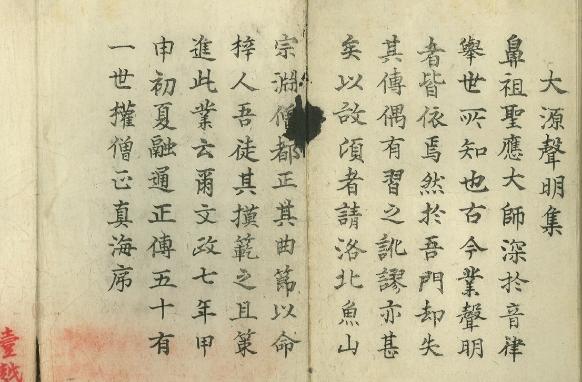 大源聲明集
鼻祖聖應大師深於音律
舉世所知也古今業聲明
者皆依焉然於吾門却失
其傳偶有習之訛謬亦甚
矣以故頃者請洛北魚山
宗淵僧都正其曲節以命
梓人吾徒其摸範之且策
進此業云爾文政七年甲
申初夏融通正傳五十有
一世權僧正真海席